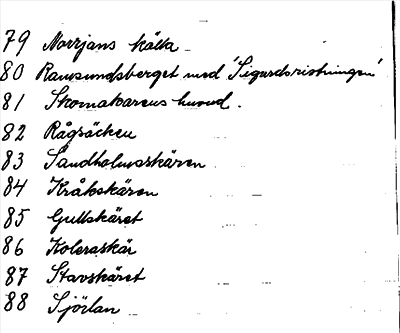 79 Norrjans källa
80 Ramsundsberget med "Sigurdsristningen"
81 Skomakarens huvud.
82 Rågsäcken
83 Sandholmsskären
84 Kråkskären
85 Gullskäret
86 Koleraskär
87 Stavskäret
88 Sjörlan